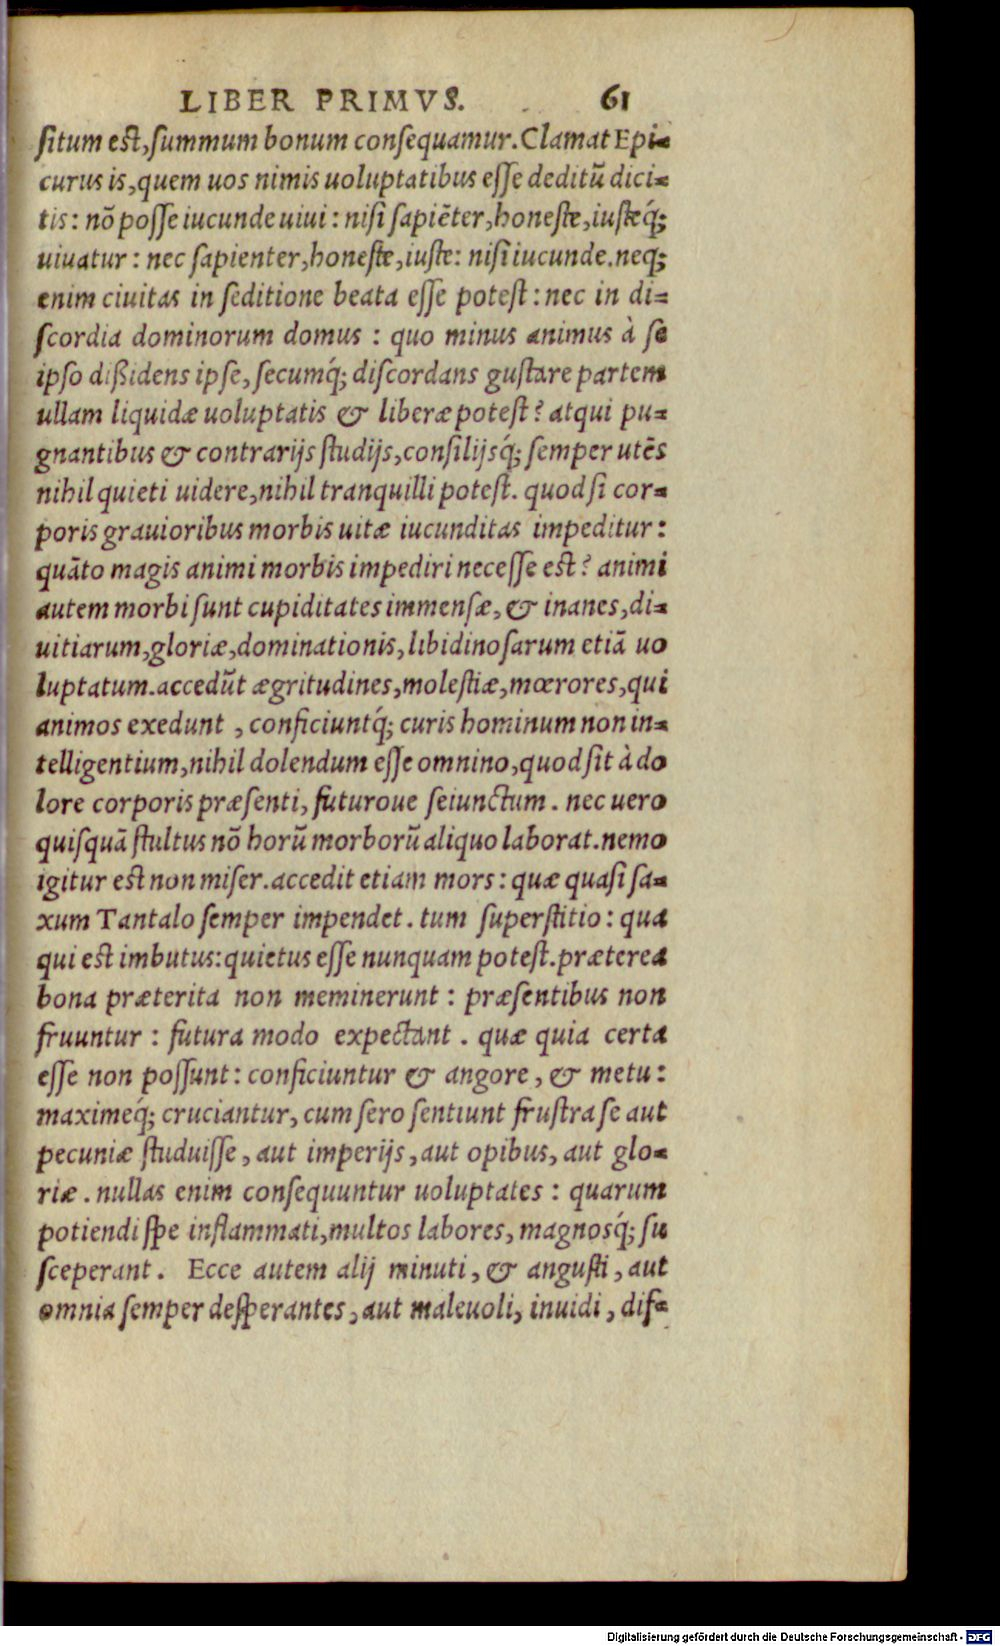 LIBER PRIMVS. 61
ſitum eſt, ſummum bonum conſequamur. Clamat Epi=
curus is, quem uos nimis uoluptatibus eſſe deditũ dici=
tis: nõ poſſe iucunde uiui: niſi ſapiẽter, honeſte, iuſteq́;
uiuatur: nec ſapienter, honeſte, iuſte: niſi iucunde. neq;
enim ciuitas in ſeditione beata eſſe poteſt: nec in di=
ſcordia dominorum domus: quo minus animus à ſe
ipſo dißidens ipſe, ſecumq́; diſcordans guſtare partem
ullam liquidæ uoluptatis & liberæ poteſt? atqui pu=
gnantibus & contrarijs ſtudijs, conſilijsq́; ſemper utẽs
nihil quieti uidere, nihil tranquilli poteſt. quod ſi cor=
poris grauioribus morbis uitæ iucunditas impeditur:
quãto magis animi morbis impediri neceſſe eſt? animi
autem morbi ſunt cupiditates immenſæ, & inanes, di=
uitiarum, gloriæ, dominationis, libidinoſarum etiã uo
luptatum. accedũt ægritudines, moleſtiæ, mœrores, qui
animos exedunt, conficiuntq́; curis hominum non in=
telligentium, nihil dolendum eſſe omnino, quod ſit à do
lore corporis præſenti, futuroue ſeiunctum. nec uero
quiſquã ſtultus nõ horũ morborũ aliquo laborat. nemo
igitur eſt non miſer. accedit etiam mors: quæ quaſi ſa=
xum Tantalo ſemper impendet. tum ſuperſtitio: qua
qui eſt imbutus: quietus eſſe nunquam poteſt. præterea
bona præterita non meminerunt: præſentibus non
fruuntur: futura modo expectant. quæ quia certa
eſſe non poſſunt: conficiuntur & angore, & metu:
maximeq́; cruciantur, cum ſero ſentiunt fruſtra ſe aut
pecuniæ ſtuduiſſe, aut imperijs, aut opibus, aut glo=
riæ. nullas enim conſequuntur uoluptates: quarum
potiendi ſpe inflammati, multos labores, magnosq́; ſu
ſceperant. Ecce autem alij minuti, & anguſti, aut
omnia ſemper deſperantes, aut maleuoli, inuidi, dif=
Digitalisierung gefördert durch die Deutsche Forschungsgemeinschaft - DFG